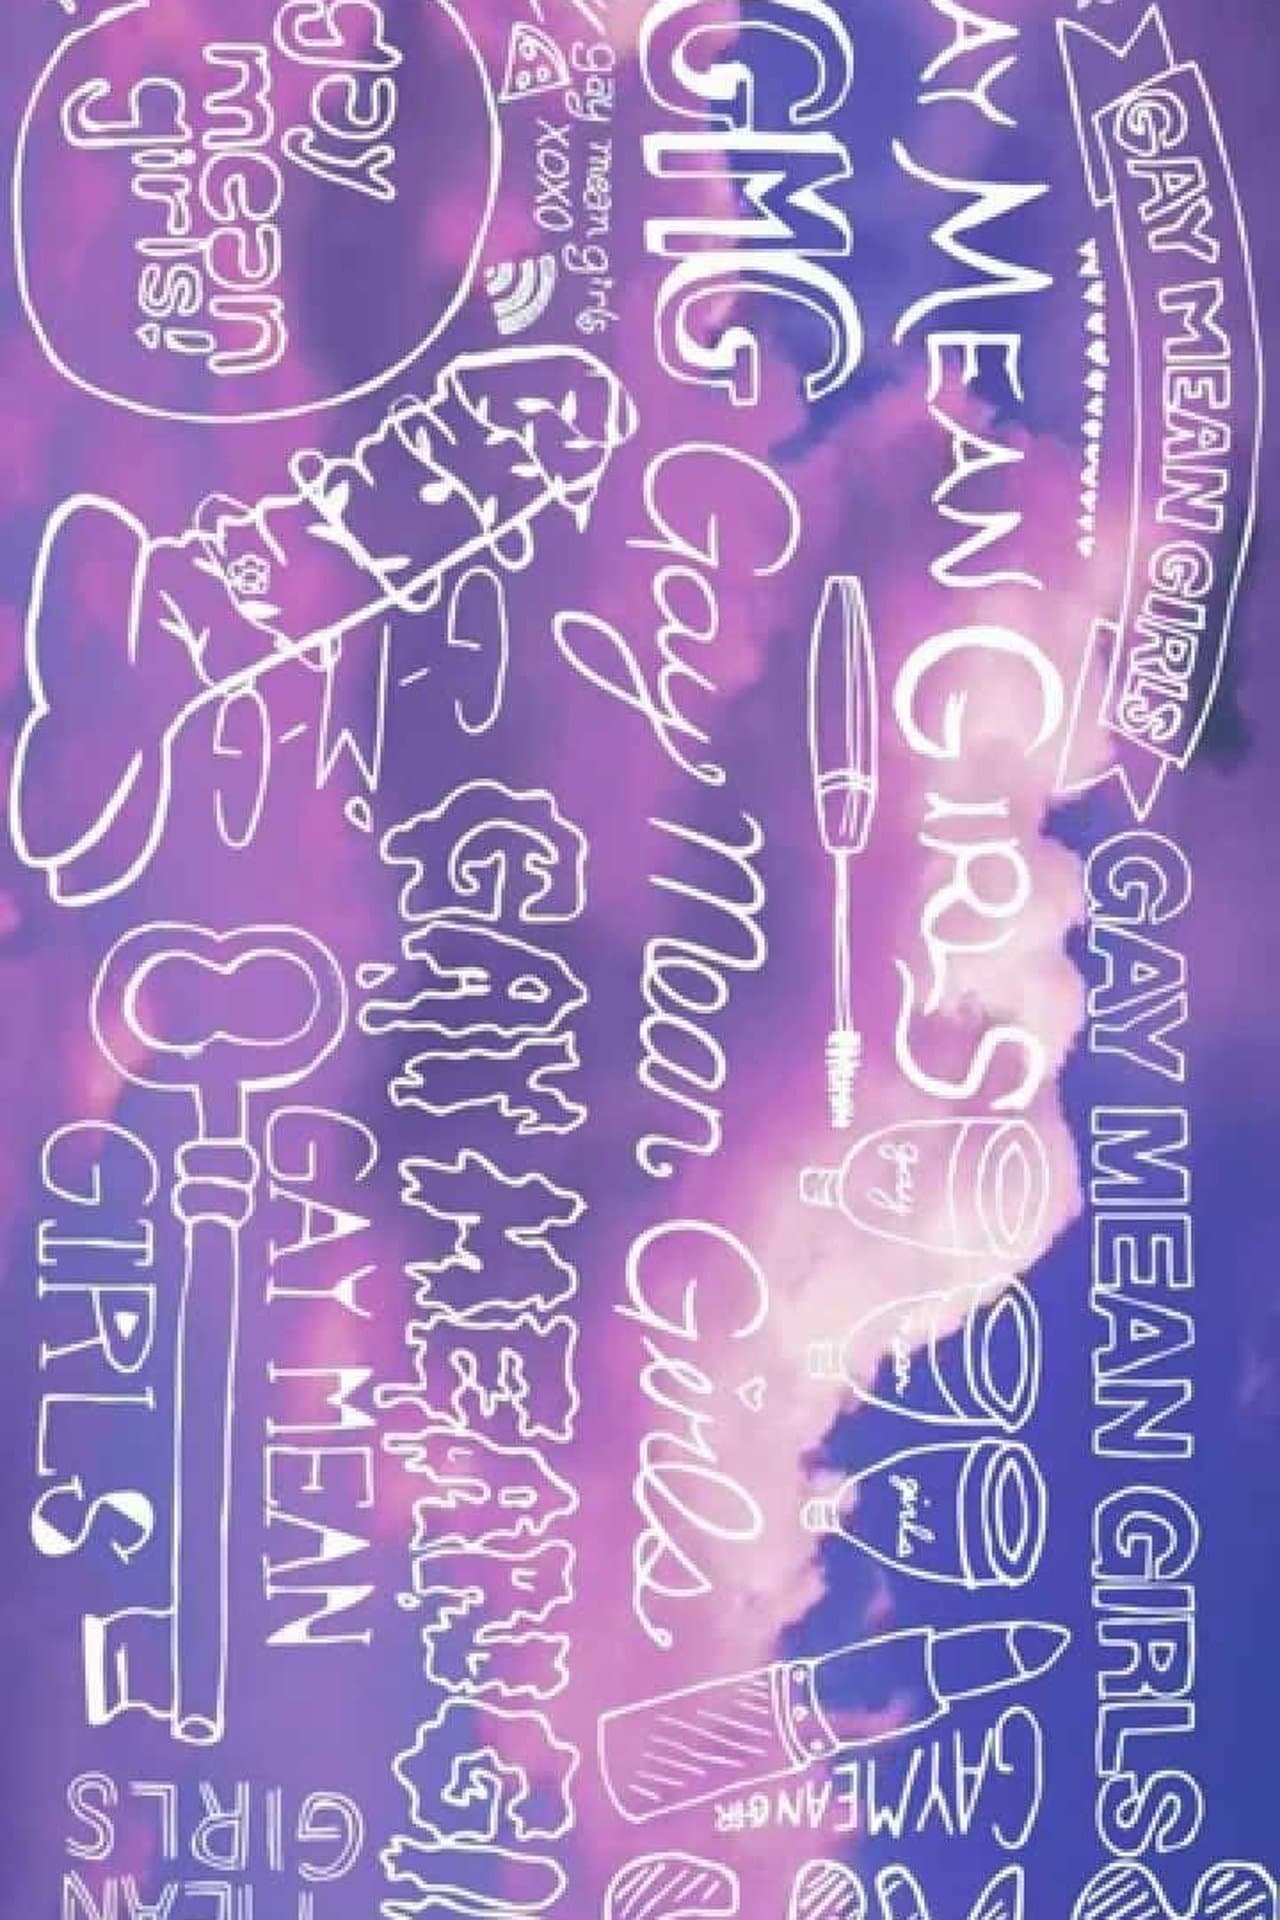 GAY MEAN GIRLS
GAY MEAN GIRLS
AY MEAN GIRLS
gay
girls
GAYMEANGIR
GMG
Gay Mean Girls
gay mean girls
xoxo
GAY MEAN
G
G
G
gay
mean
girls!
GAY MEAN
GIRLS
GIRLS